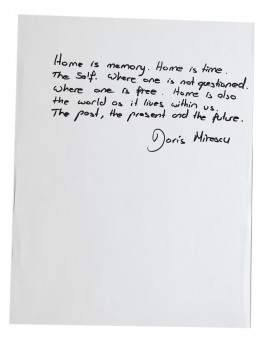 Home is memory. Home is time.
The Self. Where one is not questioned.
Where one is free. Home is also
the world as it lives within us.
The past, the present and the future.
Doris Mirescu